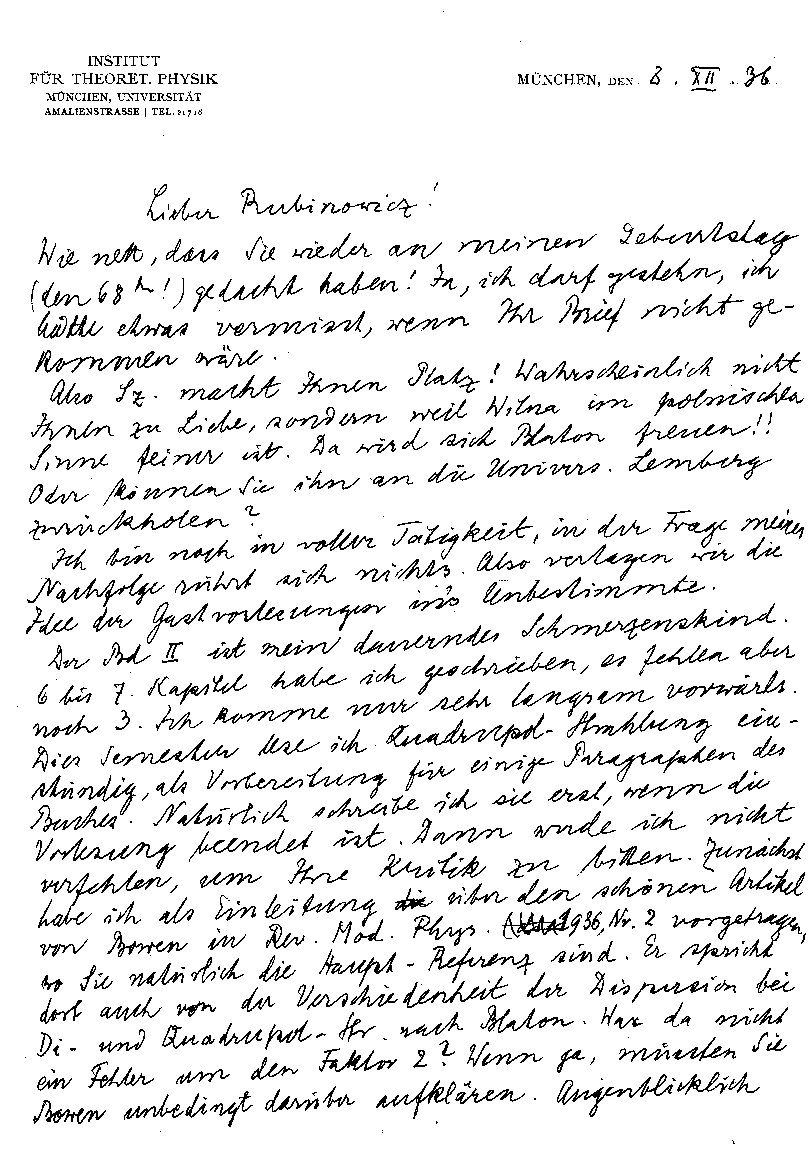 INSTITUT
FÜR THEORET. PHYSIK
MÜNCHEN, UNIVERSITÄT
AMALIENSTRASSE | TEL.
MÜNCHEN, DEN 8. XII. 36.
Lieber Rubinowicz!
Wie nett, dass Sie wieder an meinen Geburtstag
(den 68ten!) gedacht haben! Ja, ich darf gestehn, ich
hätte etwas vermisst, wenn Ihr Brief nicht ge-
kommen wäre.
Also Sz. macht Ihnen Platz! Wahrscheinlich nicht
Ihnen zu Liebe, sondern weil Wilna im polnischen
Sinne feiner ist. Da wird sich Blaton freuen!!
Oder können Sie ihn an die Univers. Lemberg
zurückholen?
Ich bin noch in voller Tätigkeit, in der Frage meines
Nachfolge rührt sich nichts. Also vertagen wir die
Idee der Gastvorlesungen in's Unbestimmte.
Der Bd II ist mein dauerndes Schmerzenskind.
6 bis 7 Kapitel habe ich geschrieben, es fehlen aber
noch 3. Ich komme nur sehr langsam vorwärts.
Dies Semester lese ich Quadrupol-Strahlung ein-
stündig, als Vorbereitung für einige Paragraphen des
Buches. Natürlich schreibe ich sie erst, wenn die
Vorlesung beendet ist. Dann werde ich nicht
verfehlen, um Ihre Kritik zu bitten. Zunächst
habe ich als Einleitung über den schönen Artikel
von Bowen in Rev. Mod. Phys. 1936, Nr. 2 vorgetragen,
wo Sie natürlich die Haupt-Referenz sind. Er spricht
dort auch von der Verschiedenheit der Dispersion bei
Di- und Quadrupol-Str. nach Blaton. War da nicht
ein Fehler um den Faktor 2? Wenn ja, müssten Sie
Bowen unbedingt darüber aufklären. Augenblicklich